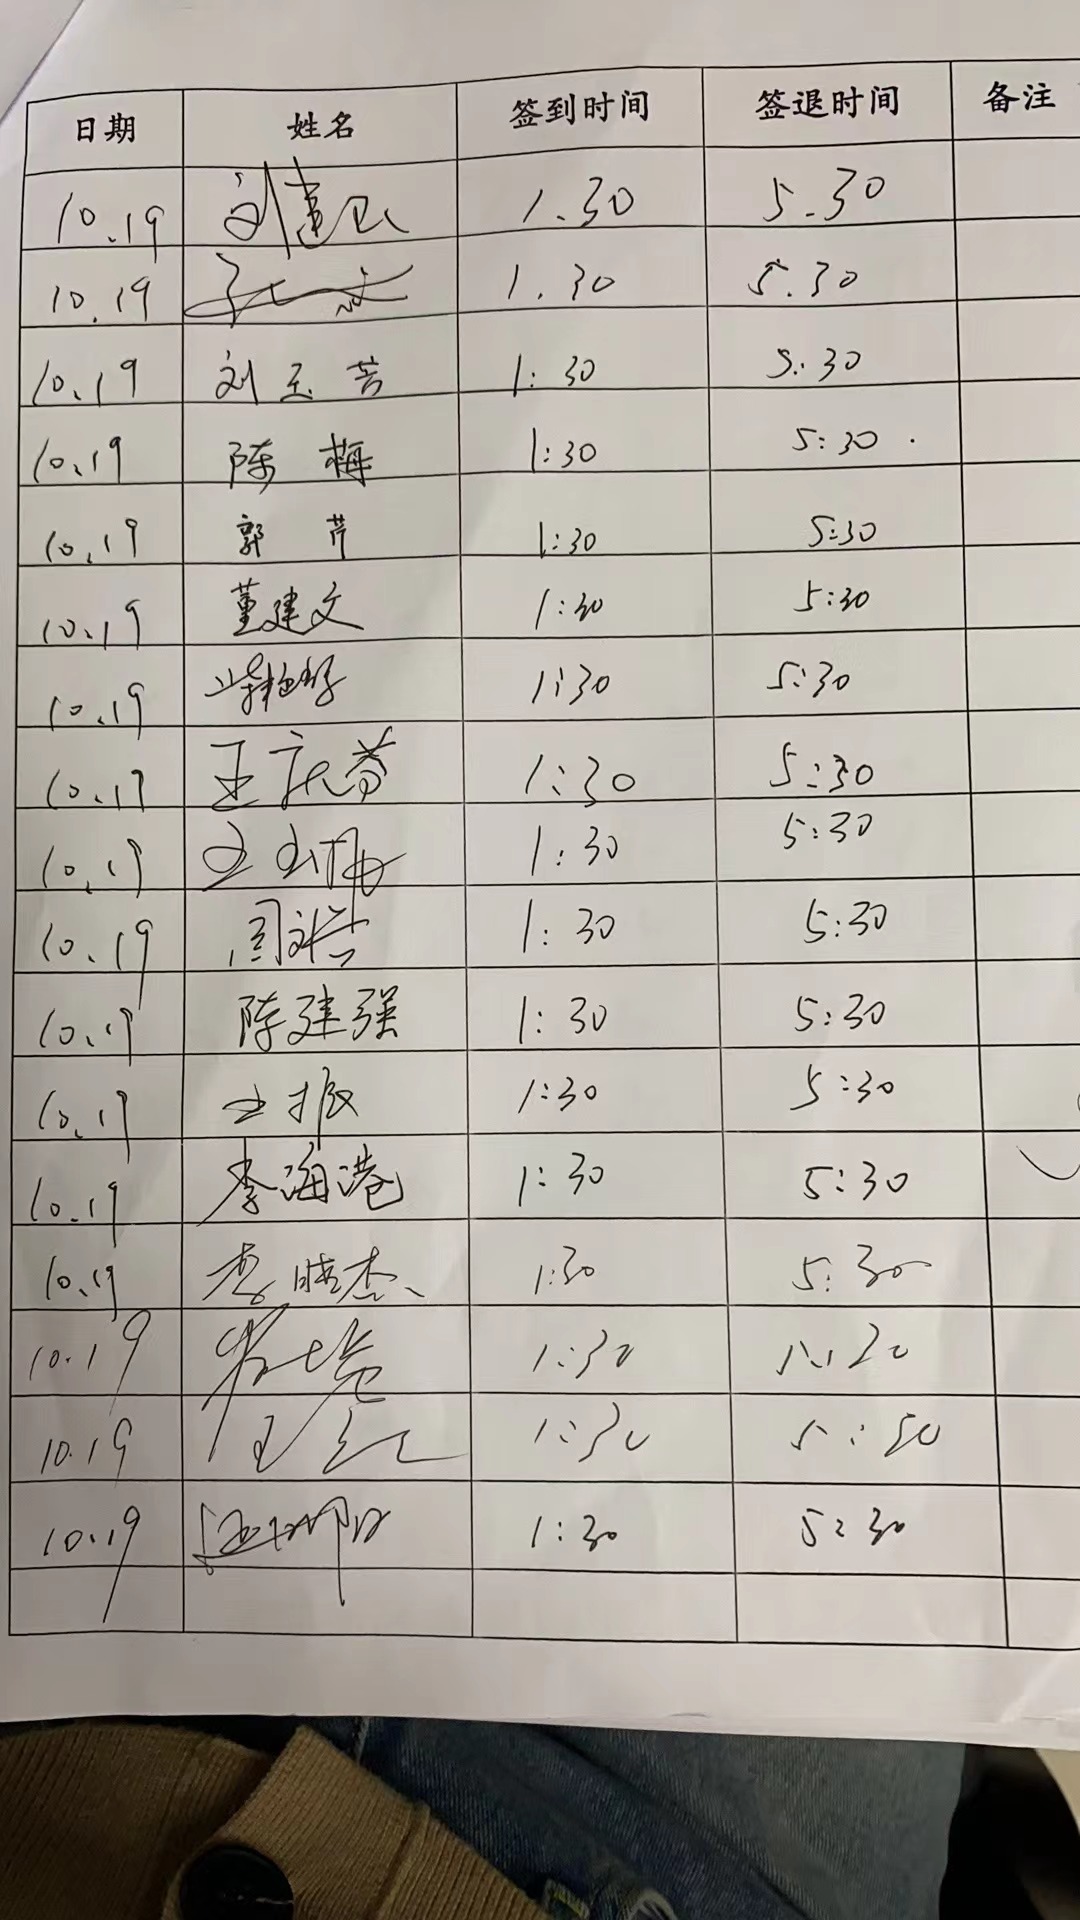 日期 姓名 签到时间 签退时间 备注
10.19 刘建 1.30 5.30
10.19 1.30 5.30
10.19 刘玉芳 1:30 5:30
10.19 陈梅 1:30 5:30
10.19 郭芹 1:30 5:30
10.19 董建文 1:30 5:30
10.19 1:30 5:30
10.19 王庆芬 1:30 5:30
10.19 王 1:30 5:30
10.19 周 1:30 5:30
10.19 陈建强 1:30 5:30
10.19 王振 1:30 5:30
10.19 李海港 1:30 5:30
10.19 李晓杰 1:30 5:30
10.19 1:30
10.19 1:30
10.19 1:30 5:30